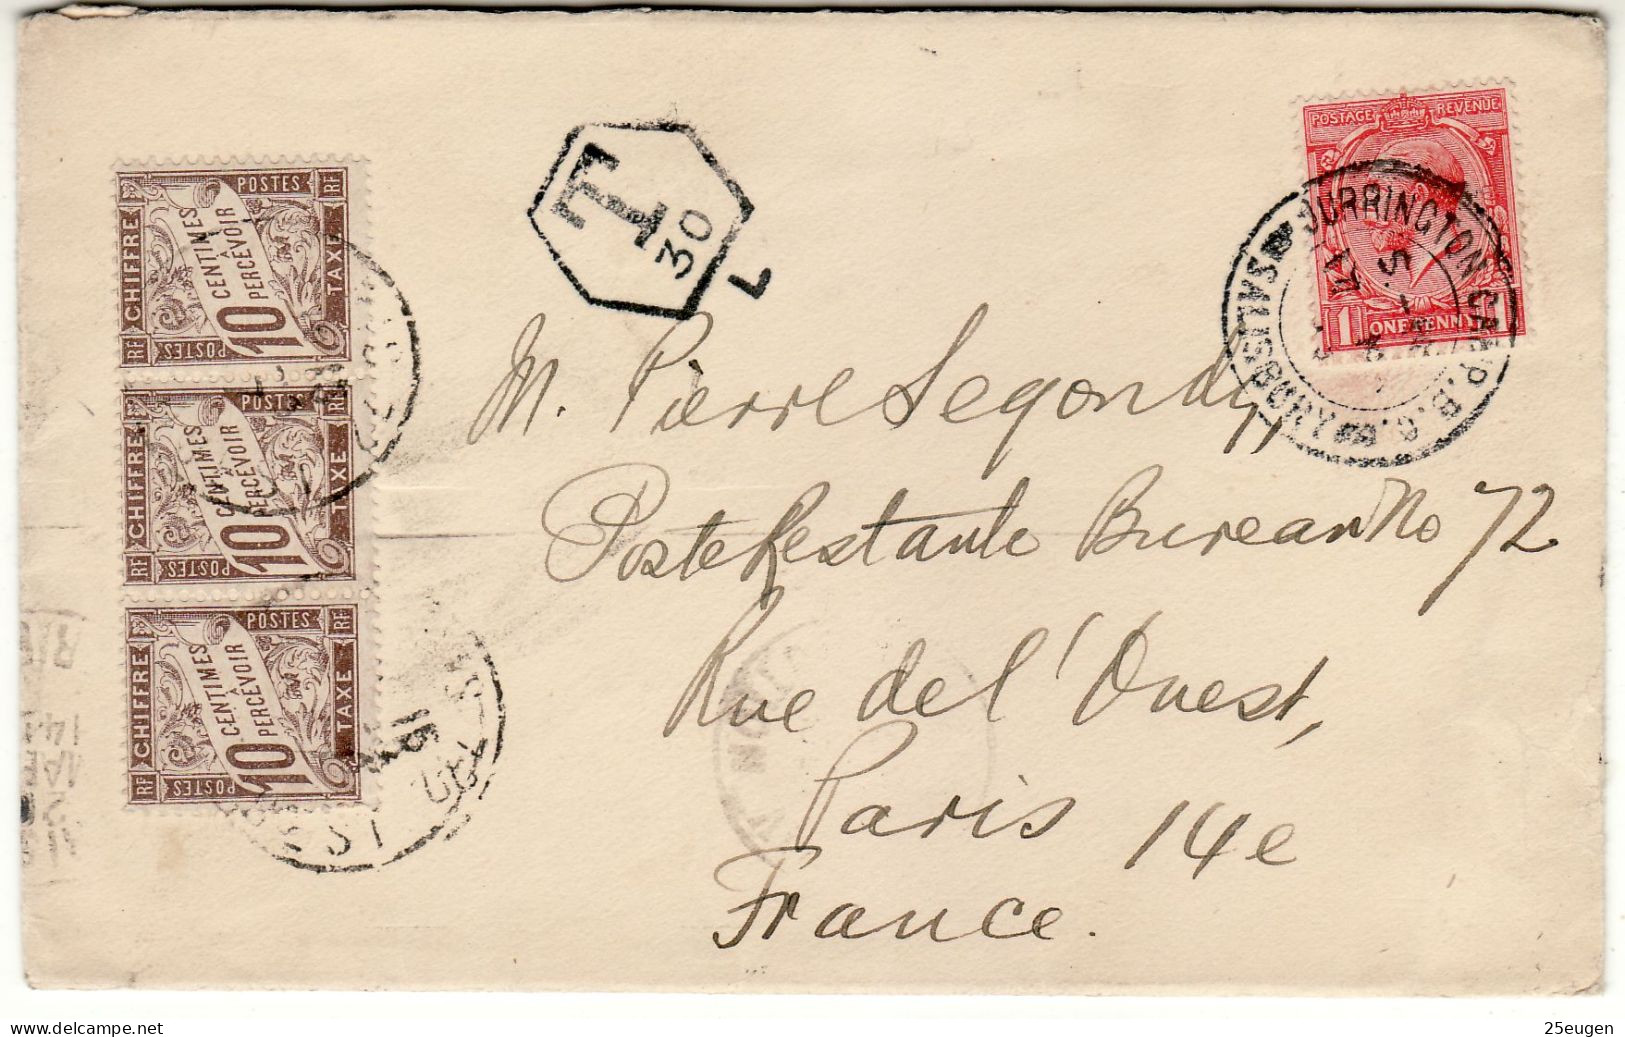 POSTAGE REVENUE
1 ONE PENNY 1
DURRINGTON CAMP. B.O.
SALISBURY
T
30
L
CHIFFRE POSTES RF
10 CENTIMES
À PERCEVOIR
RF POSTES TAXE
CHIFFRE RF
10 CENTIMES
À PERCEVOIR
RF POSTES TAXE
CHIFFRE POSTES RF
10 CENTIMES
À PERCEVOIR
RF POSTES TAXE
M. Pierre Segondy,
Poste Restante Bureau No 72
Rue de l'Ouest,
Paris 14e
France.
delcampe.net
25eugen